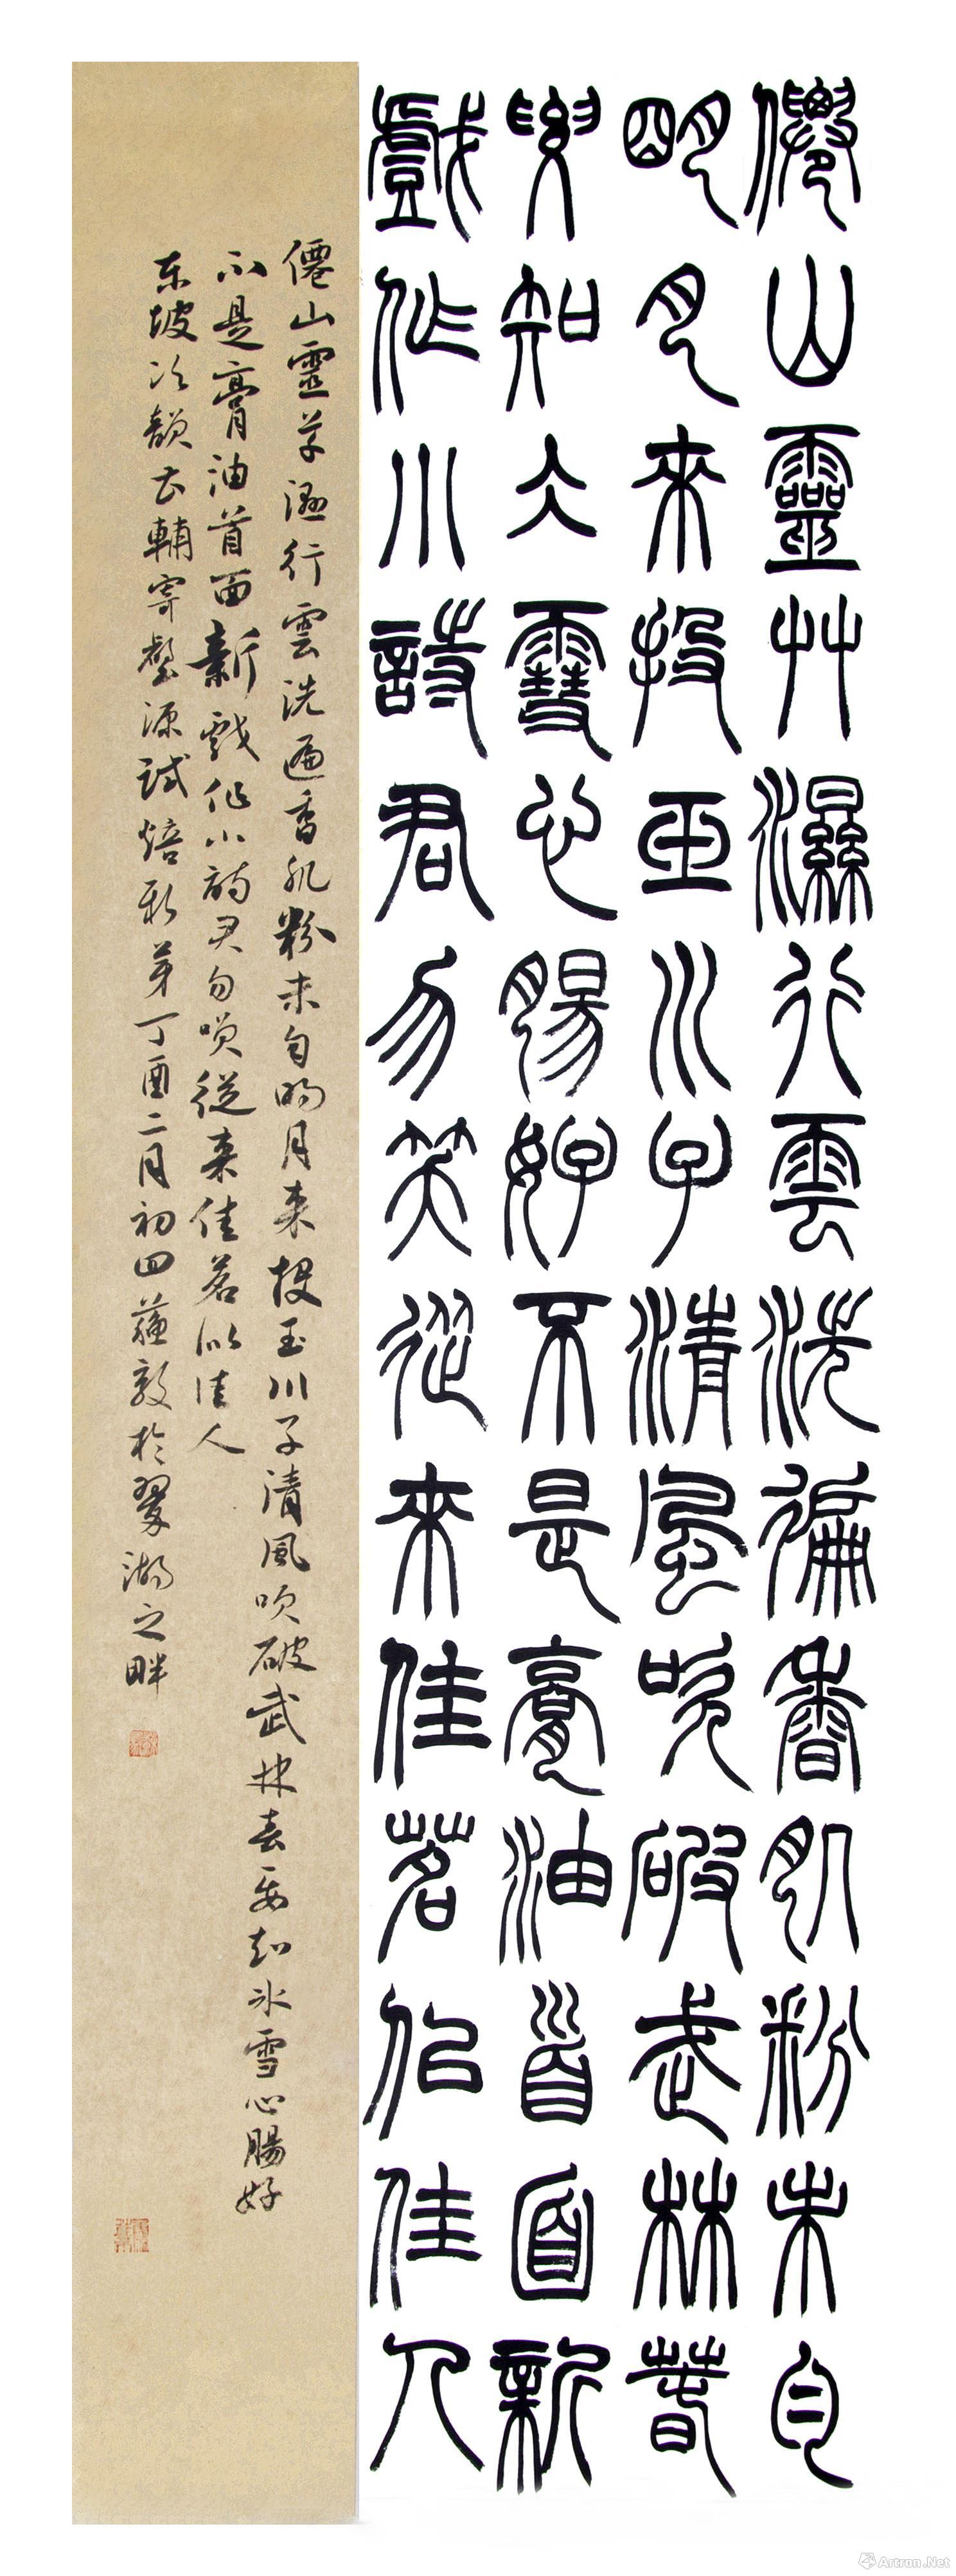 僊山靈艸濕行雲洗徧香肌粉未勻
明月來投玉川子清風吹破武林春
要知仌雪心腸好不是膏油首面新
戲作小詩君勿笑從來佳茗似佳人
僊山靈草濕行雲洗遍香肌粉未勻明月来投玉川子清風吹破武林春要知冰雪心腸好
不是膏油首面新戲作小詩君勿笑從来佳茗似佳人
东坡次韻曹輔寄壑源試焙新芽丁酉二月初四蘓敦於翠湖之畔
Artron.Net